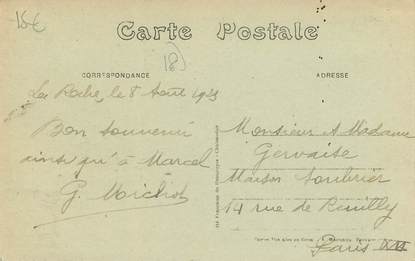 15€
Carte Postale
18)
CORRESPONDANCE
ADRESSE
La Roche, le 8 Août 1923
Bon souvenir
ainsi qu'à Marcel
G. Michot
Monsieur et Madame
Gervaise
Maison Soubrier
14 rue de Reuilly
Paris XII